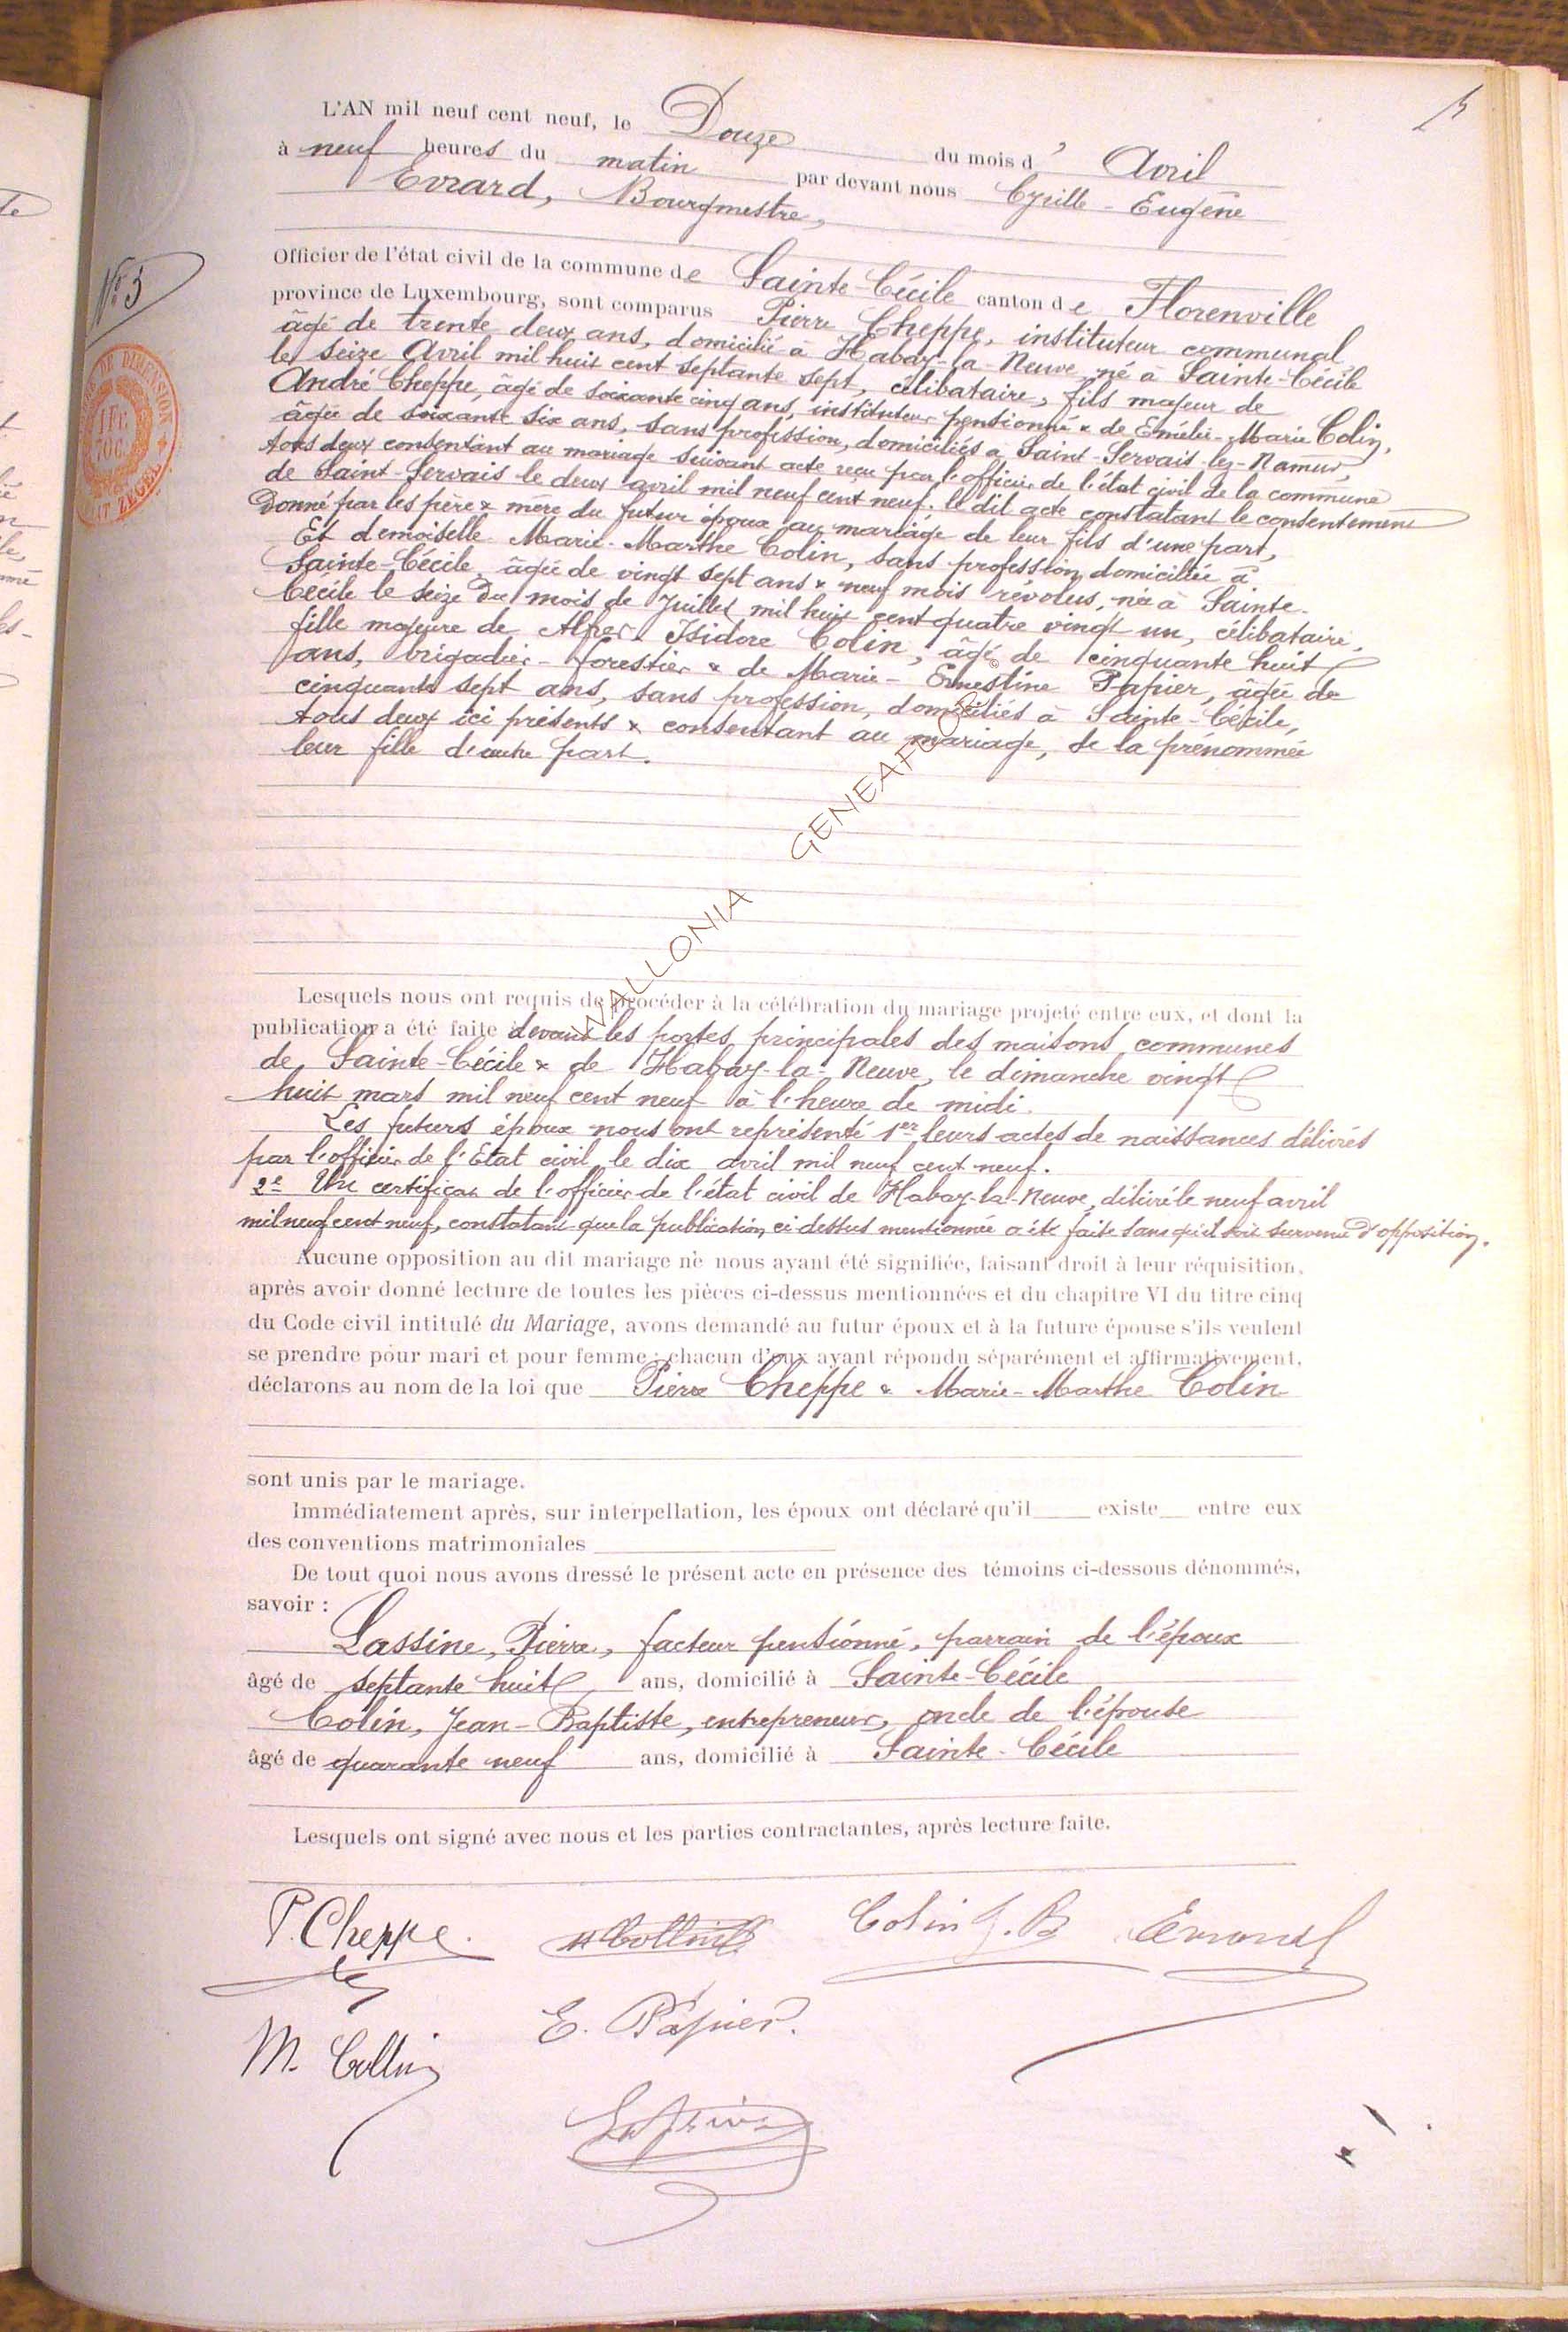 L'AN mil neuf cent neuf, le Douze du mois d' Avril
à neuf heures du matin par devant nous Cyrille - Eugène
Evrard, Bourgmestre,
Officier de l'état civil de la commune de Sainte-Cécile canton de Florenville
N° 5
province de Luxembourg, sont comparus Pierre Cheppe, instituteur communal
âgé de trente deux ans, domicilié à Habay-la-Neuve, né à Sainte-Cécile
le seize Avril mil huit cent septante sept, célibataire, fils majeur de
André Cheppe, âgé de soixante cinq ans, instituteur pensionné & de Emélie-Marie Colin,
âgée de soixante six ans, sans profession, domiciliés à Saint-Servais-lez-Namur,
tous deux consentant au mariage suivant acte reçu par l'officier de l'état civil de la commune
de Saint-Servais le deux avril mil neuf cent neuf. le dit acte constatant le consentement
Donné par les père & mère du futur époux au mariage de leur fils d'une part,
Et demoiselle Marie-Marthe Colin, sans profession, domiciliée à
Sainte-Cécile, âgée de vingt sept ans & neuf mois révolus, née à Sainte-
Cécile le seize du mois de Juillet mil huit cent quatre vingt un, célibataire,
fille majeure de Isidore Colin, âgé de cinquante huit
ans, brigadier-forestier & de Marie-Ernestine Papier, âgée de
cinquante sept ans, sans profession, domiciliés à Sainte-Cécile,
tous deux ici présents & consentant au mariage, de la prénommée
leur fille d'autre part.
WALLONIA GENEAFLOR ©
Lesquels nous ont requis de procéder à la célébration du mariage projeté entre eux, et dont la
publication a été faite devant les portes principales des maisons communes
de Sainte-Cécile & de Habay-la-Neuve, le dimanche vingt
huit mars mil neuf cent neuf à l'heure de midi.
Les futurs époux nous ont représenté 1er leurs actes de naissances délivrés
par l'officier de l'Etat civil le dix avril mil neuf cent neuf.
2e Un certificat de l'officier de l'état civil de Habay-la-Neuve, délivré le neuf avril
mil neuf cent neuf, constatant que la publication ci-dessus mentionnée a été faite sans qu'il soit survenu d'opposition.
Aucune opposition au dit mariage ne nous ayant été signifiée, faisant droit à leur réquisition,
après avoir donné lecture de toutes les pièces ci-dessus mentionnées et du chapitre VI du titre cinq
du Code civil intitulé du Mariage, avons demandé au futur époux et à la future épouse s'ils veulent
se prendre pour mari et pour femme ; chacun d'eux ayant répondu séparément et affirmativement,
déclarons au nom de la loi que Pierre Cheppe & Marie-Marthe Colin
sont unis par le mariage.
Immédiatement après, sur interpellation, les époux ont déclaré qu'il existe entre eux
des conventions matrimoniales
De tout quoi nous avons dressé le présent acte en présence des témoins ci-dessous dénommés,
savoir :
Lassine, Pierre, facteur pensionné, parrain de l'époux
âgé de septante huit ans, domicilié à Sainte-Cécile
Colin, Jean-Baptiste, entrepreneur, oncle de l'épouse
âgé de quarante neuf ans, domicilié à Sainte-Cécile
Lesquels ont signé avec nous et les parties contractantes, après lecture faite.
P. Cheppe. Colin J. B Evrard
M. Collin E. Papier.
Lassine